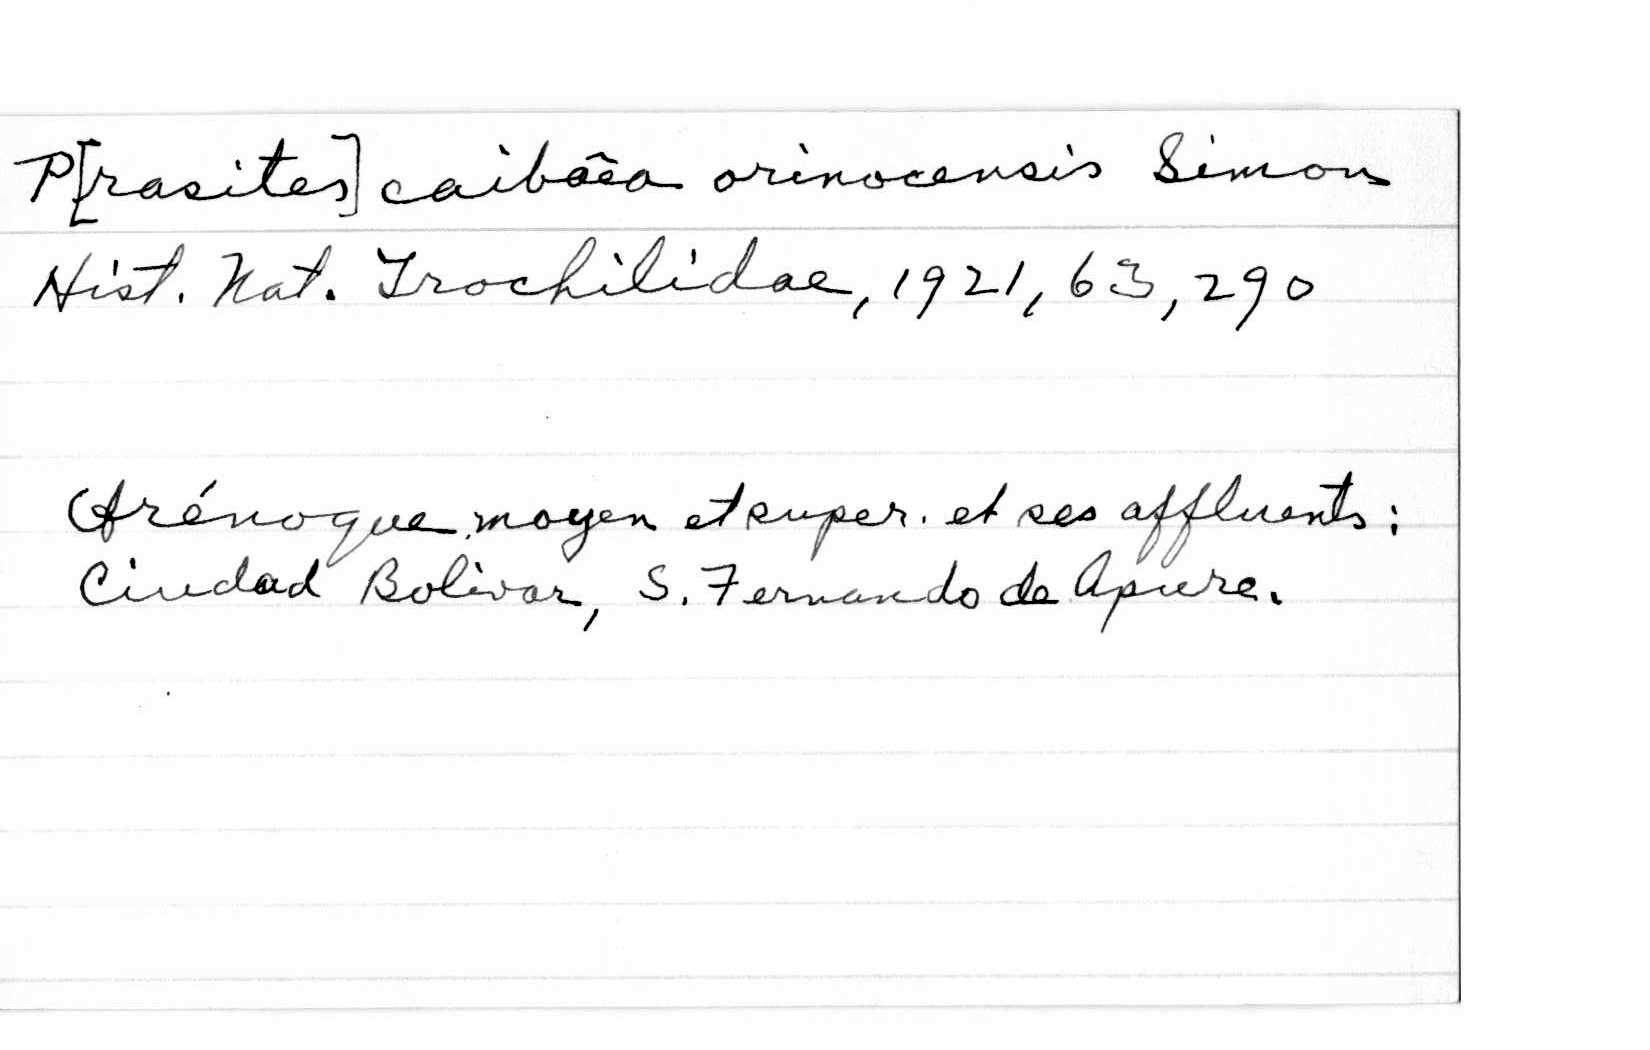 P[rasites] caibõea orinocensis Simon
Hist. Nat. Trochilidae, 1921, 63, 290
Orénoque moyen et super. et ses affluents:
Ciudad Bolivar, S. Fernando de Apure.